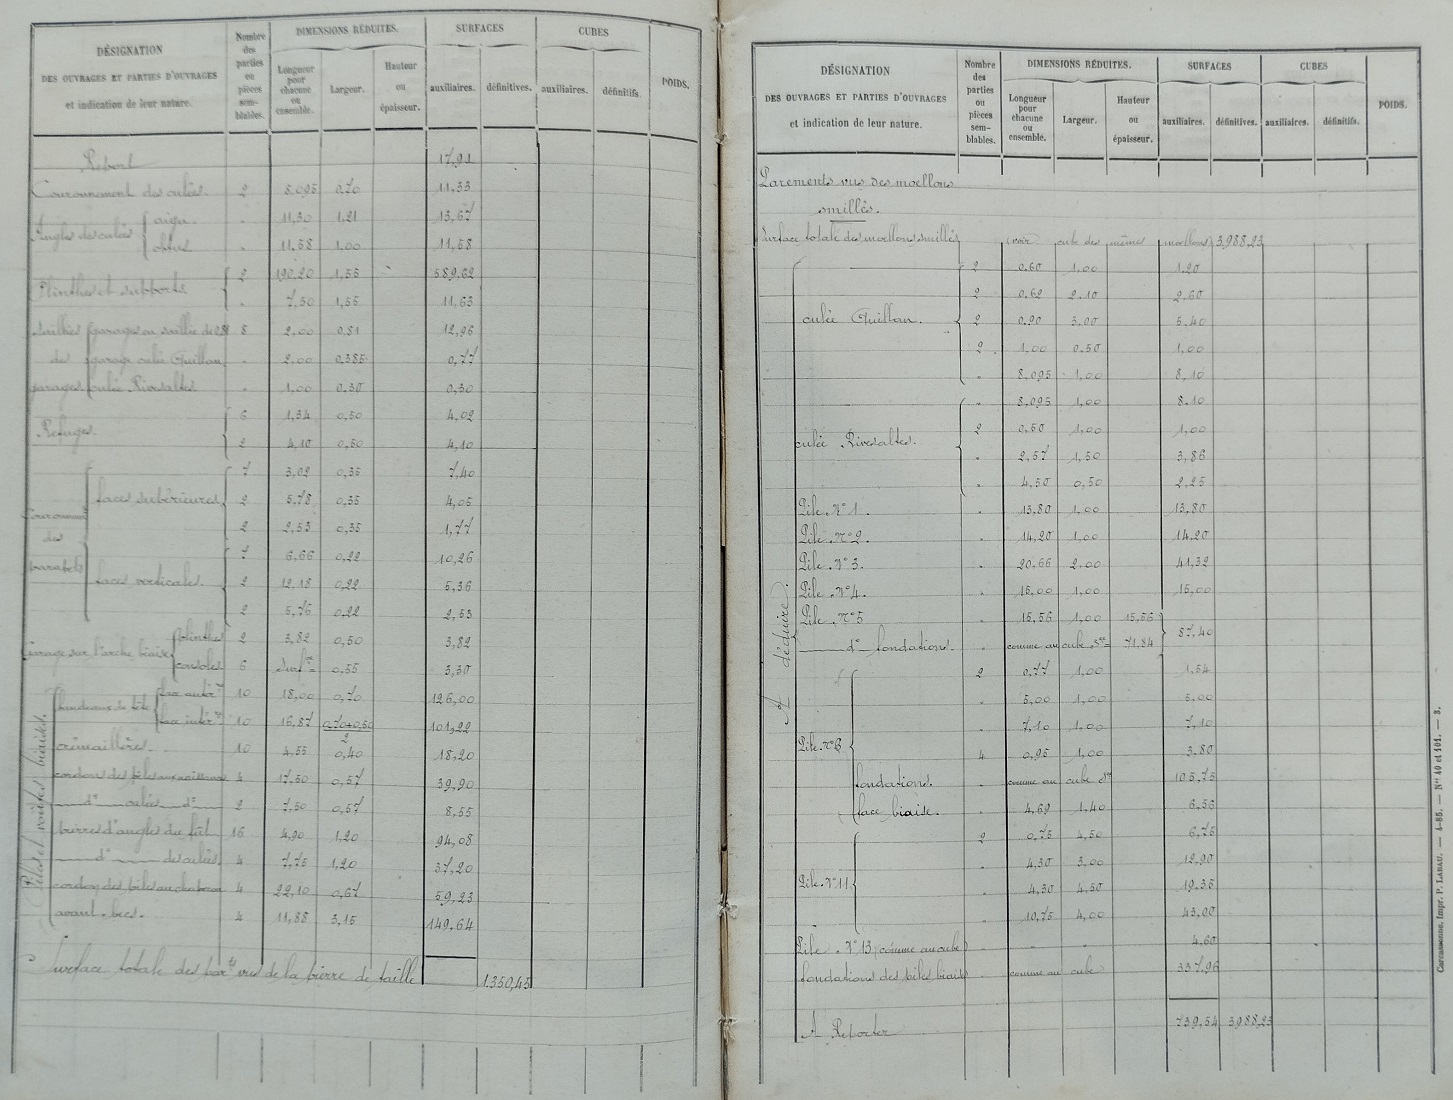 DÉSIGNATION
DES OUVRAGES ET PARTIES D'OUVRAGES
et indication de leur nature.
Nombre des parties ou pièces sem- blables.
DIMENSIONS RÉDUITES.
Longueur pour chacune ou ensemble.
Largeur.
Hauteur ou épaisseur.
SURFACES
auxiliaires.
définitives.
CUBES
auxiliaires.
définitifs.
POIDS.
Report 17,91
Couronnement des culées 2 8.095 0,70 11,33
Angles des culées { aigu " 11,30 1,21 13,67
obtus " 11,58 1,00 11,58
Plinthes et supports 2 190,20 1,55 589,62
" 7,50 1,55 11,63
Saillies garages en saillie de 0.81 8 2,00 0,81 12,96
des garage culée Quillan " 2,00 0,385 0,77
garages culée Rivesaltes " 1,00 0,30 0,30
Refuges 6 1,34 0,50 4,02
2 4,10 0,50 4,10
Couronnt des parapets
faces supérieures 7 3,02 0,35 7,40
2 5,78 0,35 4,05
2 2,53 0,35 1,77
faces verticales 7 6,66 0,22 10,26
2 12,18 0,22 5,36
2 5,76 0,22 2,53
garage sur l'arche biaise { plinthes 2 3,82 0,50 3,82
consoles 6 0,55 3,30
Piles et voûtes biaises.
bandeaux de tête { face antérre 10 18,00 0,70 126,00
face intérre 10 16,87 0,70+0,50 / 2 101,22
crémaillères 10 4,55 0,40 18,20
cordons des piles aux naissances 4 17,50 0,57 39,90
do culées do 2 7,50 0,57 8,55
pierres d'angles du fût 16 4,90 1,20 94,08
do des culées 4 7,75 1,20 37,20
cordon des piles au chapeau 4 22,10 0,67 59,23
avant-becs. 4 11,88 3,15 149,64
Surface totale des parts vus de la pierre de taille 1.350,45
DÉSIGNATION
DES OUVRAGES ET PARTIES D'OUVRAGES
et indication de leur nature.
Nombre des parties ou pièces sem- blables.
DIMENSIONS RÉDUITES.
Longueur pour chacune ou ensemble.
Largeur.
Hauteur ou épaisseur.
SURFACES
auxiliaires.
définitives.
CUBES
auxiliaires.
définitifs.
POIDS.
Parements vus des moellons
smillés.
Surface totale des moellons smillés (voir cube des mêmes moellons) 3,988,23
A déduire
culée Quillan. 2 0,60 1,00 1,20
2 0,62 2,10 2,60
2 0,90 3,00 5,40
2 1,00 0,50 1,00
" 8,095 1,00 8,10
culée Rivesaltes. " 8,095 1,00 8,10
2 0,50 1,00 1,00
" 2,57 1,50 3,86
" 4,50 0,50 2,25
Pile No 1. " 13,80 1,00 13,80
Pile No 2. " 14,20 1,00 14,20
Pile No 3. " 20,66 2,00 41,32
Pile No 4. " 15,00 1,00 15,00
Pile No 5 " 15,56 1,00 15,56
do fondations. " comme au cube 71,84 87,40
Pile No 6 2 0,77 1,00 1,54
" 5,00 1,00 5,00
" 7,10 1,00 7,10
4 0,95 1,00 3,80
fondations. " comme au cube do 105,75
face biaise. " 4,69 1,40 6,56
Pile No 11 2 0,75 4,50 6,75
" 4,30 3,00 12,90
" 4,30 4,50 19,35
" 10,75 4,00 43,00
Pile No 13 (comme au cube) " " " 4,60
fondations des piles biaises " comme au cube 357,96
A Reporter 739,54 3988,23
Carcassonne, Impr. P. LABAU. — 4-85. — Nos 40 et 101. — 3.